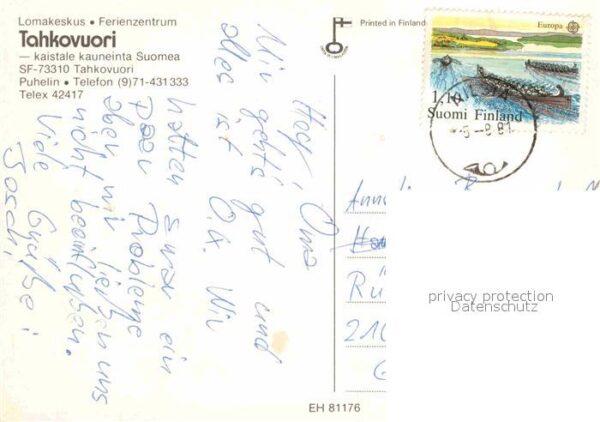 Lomakeskus • Ferienzentrum
Tahkovuori
— kaistale kauneinta Suomea
SF-73310 Tahkovuori
Puhelin • Telefon (9)71-431333
Telex 42417
Printed in Finland
Europa
1,10
Suomi Finland
-5-8.81
Hey, Oma
Mir gehts gut und
alles ist O.K. Wir
hatten zwar ein
paar Probleme
aber wir ließen uns
nicht beeinflußen.
Viele Grüße:
Josch,
Anne
Rü
210
privacy protection
Datenschutz
EH 81176